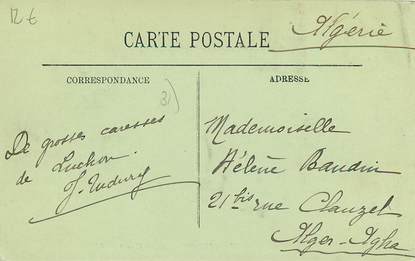 12 €
Algérie
CARTE POSTALE
CORRESPONDANCE
ADRESSE
De grosses caresses
de Luchon.
Mademoiselle
Hélène Baudin
21 bis rue Clauzel
Alger-Agha